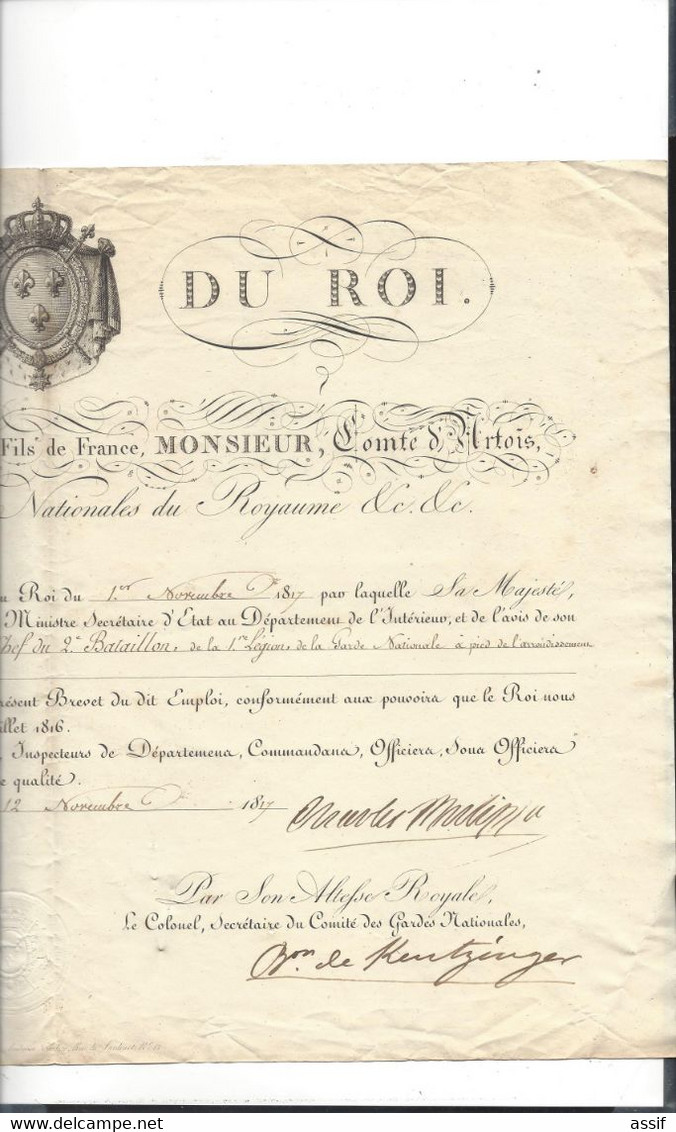 DU ROI.
Fils de France, MONSIEUR, Comte d'Artois,
Nationales du Royaume &c. &c.
u Roi du 1.er Novembre 1817 par laquelle Sa Majesté,
Ministre Secrétaire d'Etat au Département de l'Intérieur, et de l'avis de son
hef du 2.e Bataillon, de la 1.re Légion, de la Garde Nationale à pied de l'arrondissement
résent Brevet du dit Emploi, conformément aux pouvoirs que le Roi nous
illet 1816.
Inspecteurs de Départemens, Commandans, Officiers, Sous Officiers
e qualité.
12 Novembre 1817
Charles Philippe
Par Son Altesse Royale,
Le Colonel, Secrétaire du Comité des Gardes Nationales,
Bon de Kentzinger
assif
delcampe.net